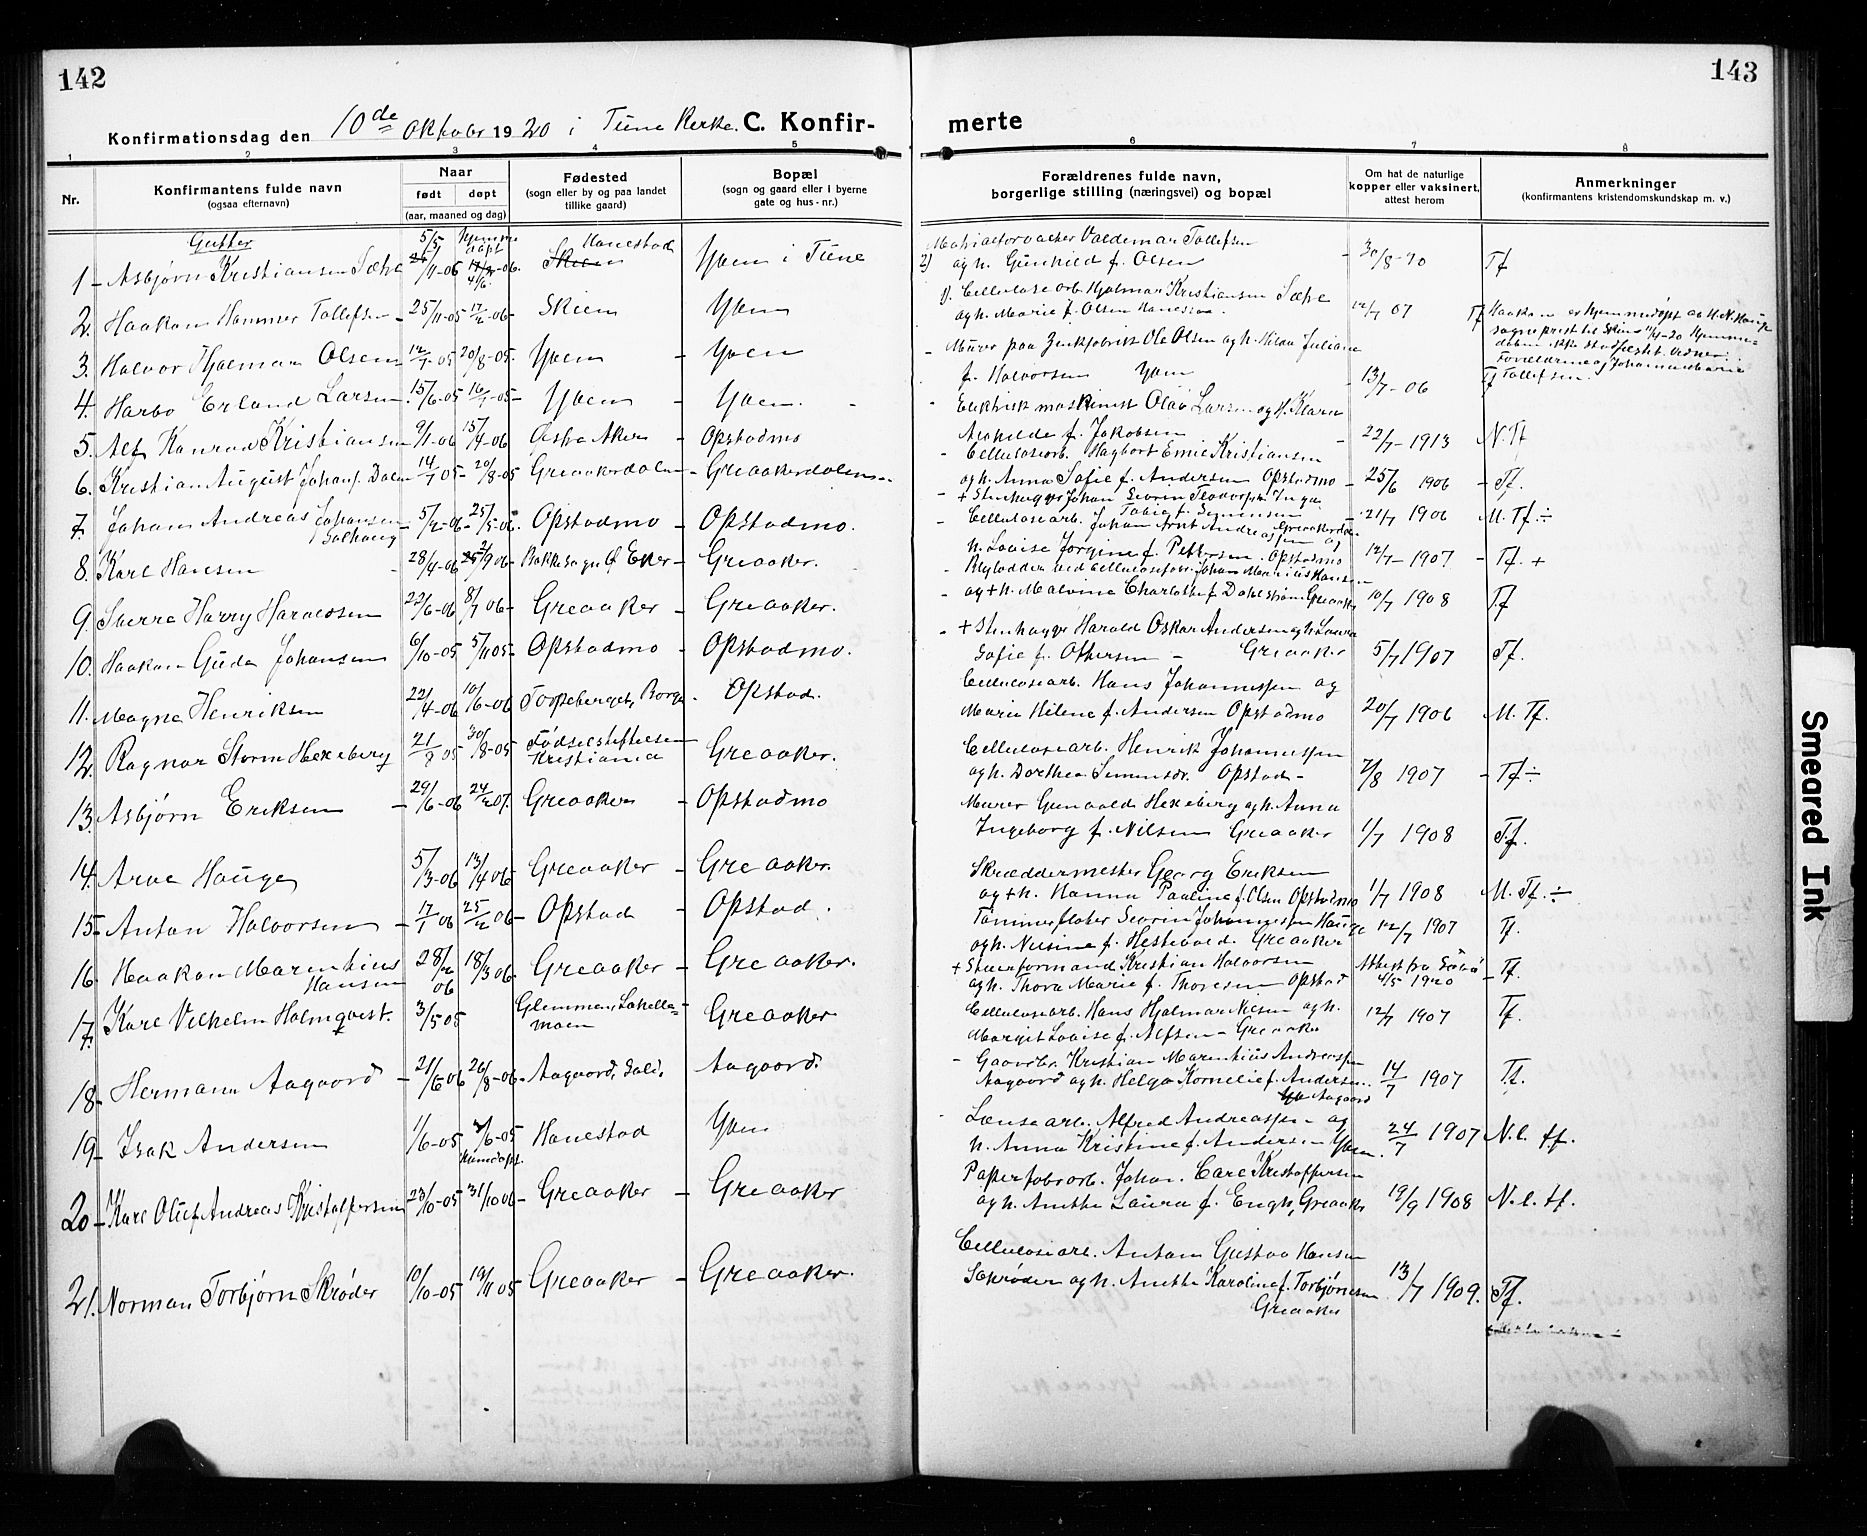 142
Konfirmationsdag den 10de Oktober 1920 i Tune Kirke. C. Konfir-
1 2 3 4 5
Nr.
Konfirmantens fulde navn
(ogsaa efternavn)
Naar
født døpt
(aar, maaned og dag)
Fødested
(sogn eller by og paa landet
tillike gaard)
Bopæl
(sogn og gaard eller i byerne
gate og hus-nr.)
Gutter
1 - Asbjørn Kristiansen
Hanestad
Skien
Yven i Tune
2. Haakon Hammer Tollefsen - 25/11-05 17/2-06 - Skien Yven
3. Halvor Hjalmar Olsen 12/7-05 20/8-05 - Yven - Yven
4. Harbo Erland Larsen 15/6-05 16/7-05 - Yven - Yven.
5. Alf Konrad Kristiansen 9/1-06 15/4-06 Østre Aker - Opstadmo
6. Kristian August Johans. Dalen 14/7 05 - 20/8-05 Greaakerdalen - Greaakerdalen
7. Johan Andreas Johansen
Solhaug
- 5/2-06 - 25/5-06 - Opstadmo - Opstadmo.
8. Karl Hansen 28/4-06 9 06 - Bakke sogn Ø. Eker - Greaaker.
9. Sverre Harry Haraldsen 22/6-06 8/7 06 - Greaaker - Greaaker.
10. Haakon Gude Johansen 6/10-05 5/11 05 - Opstadmo - Opstadmo.
11. Magne Henriksen 22/4-06 10/6-06 Torpeberget, Borge - Opstad.
12. Ragnar Storm Hexeberg 21/8 05 30/8-05 - Fødselsstiftelsen
Kristiania
Greaaker.
13. Asbjørn Eriksen - 29/6-06 24/2 07. Greaaker - Opstadmo
14. Arve Hauge 5/13-06 13/14 06 Greaaker - Greaaker.
15 - Anton Halvorsen - 17/1 06 25/2 06 - Opstad - Opstad.
16. Haakon Marentius
Hansen
28/2
06
18/3 06 Greaaker - Greaaker.
17. Karl Vilhelm Holmqvist. 3/5 05 Glemmen,
moen
Greaaker
18 - Hermann Aagaard - 21/6 06 26/8-06 - Aagaard, Solli. Aagaard.
19 - Isak Andersen 1/6-05 2/6-05 Hanestad Yven
20 - Karl Oluf Andreas Kristoffersen 23/10-05 31/10 06 - Greaaker - Greaaker
21. Norman Torbjørn Skrøder 10/10-05 19/11 05 Greaaker - Greaaker.
143
merte
6 7 8
Forældrenes fulde navn,
borgerlige stilling (næringsvei) og bopæl
Om hat de naturlige
kopper eller vaksinert,
attest herom
Anmerkninger
(konfirmantens kristendomskundskap m. v.)
Valdemar Tollefsen
2) og h. Gunhild f. Olsen - 30/8-10 Tf
1). Cellulosearb. Hjalmar Kristiansen
og h. Marie f. Olsen 12/7 07 Tf
Haakon er hjemmedøpt av H. N. Hauge
sogneprest til Skien 11/4-20 Hjemme-
daaben ikke stadfestet. Vidner:
Forældrene og Johanne Marie
Tollefsen.
- Murer paa Zinkfabrik Ole Olsen og h. Hilda Juliane
f. Halvorsen Yven - 13/7-06 Tf
- Elektrisk maskinist Olav Larsen og h. Klara
f. Jakobsen - 22/7-1913 N. Tf
- Cellulosearb. Hagbart Emil Kristiansen
og h. Anna Sofie f. Andersen Opstadmo - 25/6 1906 - Tf.
- + Stenhugger Johan Severin
f. Simensen
Greaakerdalen
- 21/7 1906 M. Tf ÷
- Cellulosearb. Johan Arnt Andreassen og
h. Lovise Jørgine f. Pettersen. Opstadmo 12/7-1907 - Tf. +
- Blylodder ved Johan Marius Hansen
og + h. Malvine Charlotte f. Dahlstrøm Greaaker 10/7 1908 Tf
- + Stenhugger Harald Oskar Andersen og h. Laura
Sofie f. Ottersen - Greaaker 5/7 1907 Tf.
Cellulosearb. Hans Johannessen og
Marie Helene f. Andersen Opstadmo 20/7 1906 M. Tf.
Cellulosearb. Henrik Johannessen
og h. Dorthea Simensdr. Opstad - 7/8 1907 - Tf ÷
Murer Gunvald Hexeberg og h. Anna
Ingeborg f. Nilsen Greaaker 1/7 1908 Tf.
Skræddermester Georg Eriksen
og + h. Hanna Pauline f. Olsen Opstadmo 1/7 1908 M. Tf. ÷
Tømmerfløter Severin Johannessen Hauge
og h. Nilsine f. Greaaker 12/7 1907 Tf.
+ Stuerformand Kristian Halvorsen
og h. Thora Marie f. Thoresen Opstad
Attest fra
4/5 1920
- Tf.
Cellulosearb. Hans Hjalmar Nilsen og h.
Margit Lovise f. Alfsen - Greaaker 12/7 1907 Tf.
- Gaardbr. Kristian Marentius Andersen
Aagaard og h. Helga Kornelie f. Andersen.
Aagaard
14/7 1907 Tf.
Lænsearb. Alfred Andreassen og
h. Anna Kristine f. Andersen Yven. 24/7 1907 N. l. tf.
Papirfabarb. Johan Carl Kristoffersen
og h. Anette Laura f. Engh, Greaaker 19/9 1908 N. l. tf.
Cellulosearb. Anton Gustav Hansen
Skrøder og h. Anette Karoline f. Torbjørnsen
Greaaker
13/7 1909. Tf.
Smeared Ink